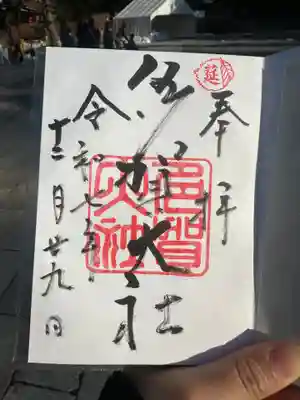 延
奉拝
多賀大社
多賀大社
令和七年
十二月廿九日